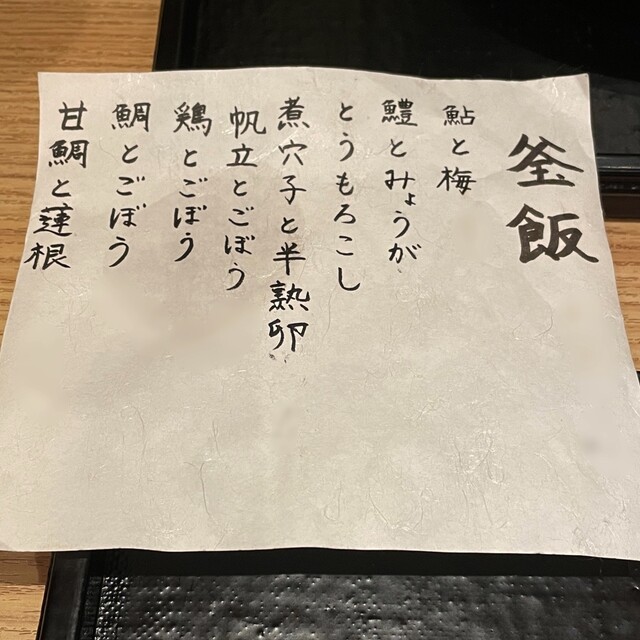 釜飯
鮎と梅
鱧とみょうが
とうもろこし
煮穴子と半熟卵
帆立とごぼう
鶏とごぼう
鯛とごぼう
甘鯛と蓮根